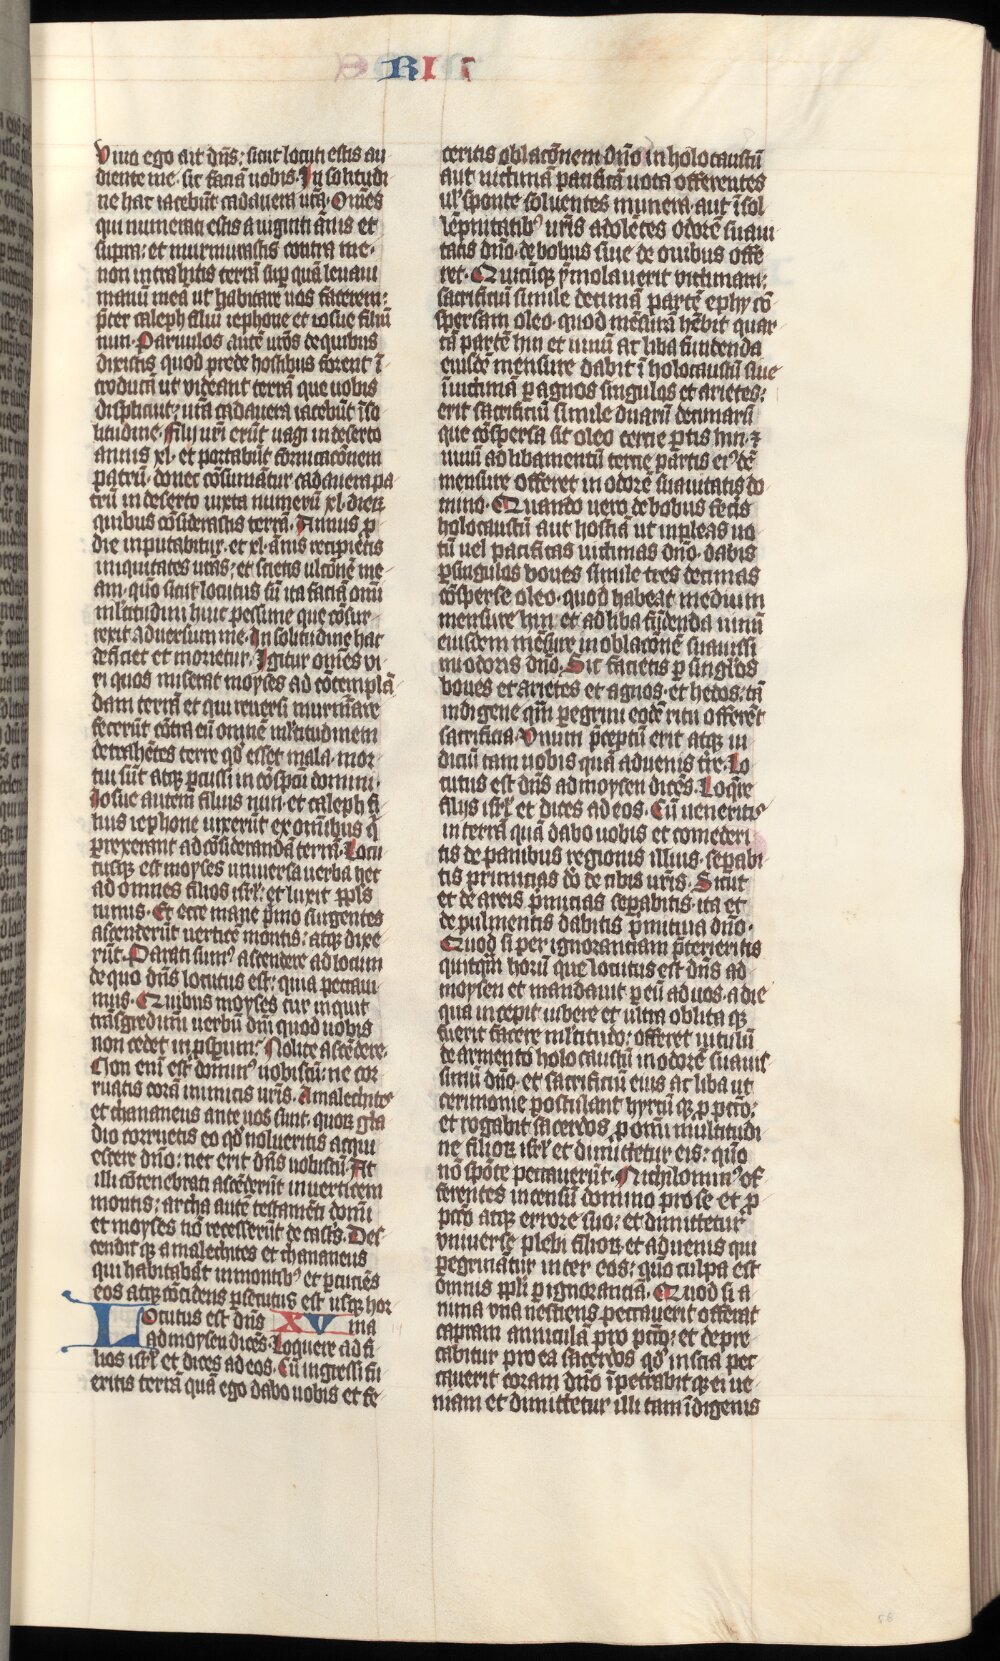 RI
Viuo ego ait dn̄s: sicut locuti estis au
diente me. sic faciā uobis. In solitudi
ne hac iacebūt cadauera vr̄a. Om̄es
qui numerati estis a uiginti ānis et
supra: et murmurastis contra me.
non intrabitis terrā sup quā leuaui
manū meā ut habitare uos facerem:
p̄ter caleph filiū iephone et iosue filiū
nun. Paruulos autē vr̄os de quibus
dixistis quod prede hostibus forent ī
troducā ut videant terrā que uobis
displicuit: vr̄a cadauera iacebūt ī so
litudine. Filij vr̄i erūt uagi in deserto
annis xl. et portabūt fornicacōnem
patrū. donec cōsumātur cadauera pa
trū in deserto iuxta numerū xl. dierꝝ
quibus cōsiderastis terrā. Annus ꝓ
die inputabitur. et xl. ānis recipietis
iniquitates vr̄as: et scietis ulcōnē me
am. quō sicut locutus sū ita faciā omī
mltitudini huic pessime que cōsur
rexit aduersum me. In solitudine hac
deficiet et morietur. Igitur om̄es vi
ri quos miserat moyses ad cōtemplā
dam terrā et qui reuersi murm̄are
fecerūt cōtra eū omnē mltitudinem
detrahētes terre qd̄ esset mala. mor
tui sūt atqꝫ ꝑcussi in cōspcū domini.
Iosue autem filius nun. et caleph fi
lius iephone vixerūt ex om̄ibus q̄
ꝑrexerant ad cōsiderandā terrā. Locu
tusqꝫ est moyses uniuersa uerba hec
ad omnes filios isrl̄. et luxit ppl̄s
nimis. Et ecce mane p̄mo surgentes
ascenderūt verticē montis: atqꝫ dixe
rūt. Parati sumꝰ ascendere ad locum
de quo dn̄s locutus est: quia peccaui
mus. Quibus moyses cur inquit
trāsgredimī uerbū dn̄i quod uobis
non cedet in ꝓsperum. Nolite ascēdere.
Non enī est dominꝰ uobiscū: ne cor
ruatis corā inimicis vr̄is. Amalechites
et chananeus ante uos sunt. quoꝝ gla
dio corruetis eo qd̄ nolueritis acqui
escere dn̄o: nec erit dn̄s uobiscū. At
illi cōtenebrati ascēderūt in verticem
montis: archa autē testamēti domī
et moyses nō recesserūt de castris. Des
cendit qꝫ amalechites et chananeus
qui habitabāt in montibꝰ et ꝑcuciēs
eos atqꝫ cōcidens ꝑsecutus est usqꝫ hor
Locutus est dn̄s XV ma
ad moysen dicēs. Loquere ad fi
lios isrl̄ et dices ad eos. Cū ingressi fu
eritis terrā quā ego dabo uobis et fe
ceritis oblacōnem dn̄o in holocaustū
aut uictimā pacificā uota offerentes
ul̄ sponte soluentes munera. aut ī sol
lēpnitatibꝰ vr̄is adolētes odorē suaui
tatis dn̄o. de bobus siue de ouibus offe
ret. Quicūqꝫ ymolauerit victimam:
sacrificiū simile decimā partē ephy cō
spersam oleo. quod mēsurā hēbit quar
tā partē hin et vinū ac liba fundenda
eiusdē mensure dabit ī holocaustū siue
ī uictimā ꝑ agnos singulos et arietes:
erit sacrificiū simile duarū decimarū
que cōspersa sit oleo tercie ꝑtis hin. ⁊
vinū ad libamentū tercie partis eiꝰdē
mensure offeret in odorē suauitatis do
mino. Quando uero de bobus fecis
holocaustū aut hostiā ut inpleas uo
tū uel pacificas uictimas dn̄o. dabis
ꝑ singulos boues simile tres decimas
cōsperse oleo. quod habeat medium
mensure hin. et ad liba fūdenda vinū
eiusdem mēsure in oblacōnē suauissi
mi odoris dn̄o. Sic facietis ꝑ singl̄os
boues et arietes et agnos. et hedos: tā
indigene qm̄ ꝑegrini eodē ritu offerēt
sacrificia. Vnum p̄ceptū erit atqꝫ iu
diciū tam uobis quā aduenis tr̄e. Lo
cutus est dn̄s ad moysen dicēs. Loqr̄e
filijs isrl̄ et dices ad eos. Cū ueneritis
in terrā quā dabo uobis et comederi
tis de panibus regionis illius. seꝑabi
tis primicias dō de cibis vr̄is. Sicut
et de areis p̄micias seꝑabitis. ita et
de pulmentis dabitis p̄mitiua dn̄o.
Quod si per ignoranciam p̄terieritis
quitqm̄ horū que locutus est dn̄s ad
moysen et mandauit ꝑ eū ad uos. a die
qua incepit iubere et ultra oblita qꝫ
fuerit facere mltitudo: offeret uitulū
de armento holocaustū in odorē suauis
simū dn̄o. et sacrificiū eius ac liba ut
cerimonie postulant hyrcū qꝫ ꝓ pctō:
et rogabit sacerdos ꝓ omī multitudi
ne filioꝝ isrl̄ et dimittetur eis: quō
nō spōte peccauerūt. Nichilominꝰ of
ferentes incensū domino pro se et ꝓ
pctō atqꝫ errore suo: et dimittetur
vniuerse plebi filioꝝ et aduenis qui
ꝑegrinātur inter eos: quō culpa est
omnis ppl̄i ꝑ ignoranciā. Quod si a
nima vna nesciens peccauerit offerat
capram anniculā pro pctō: et depre
cabitur pro ea sacerdos qd̄ inscia pec
cauerit coram dn̄o īpetrabit qꝫ ei ue
niam et dimittetur illi tam īdigenis